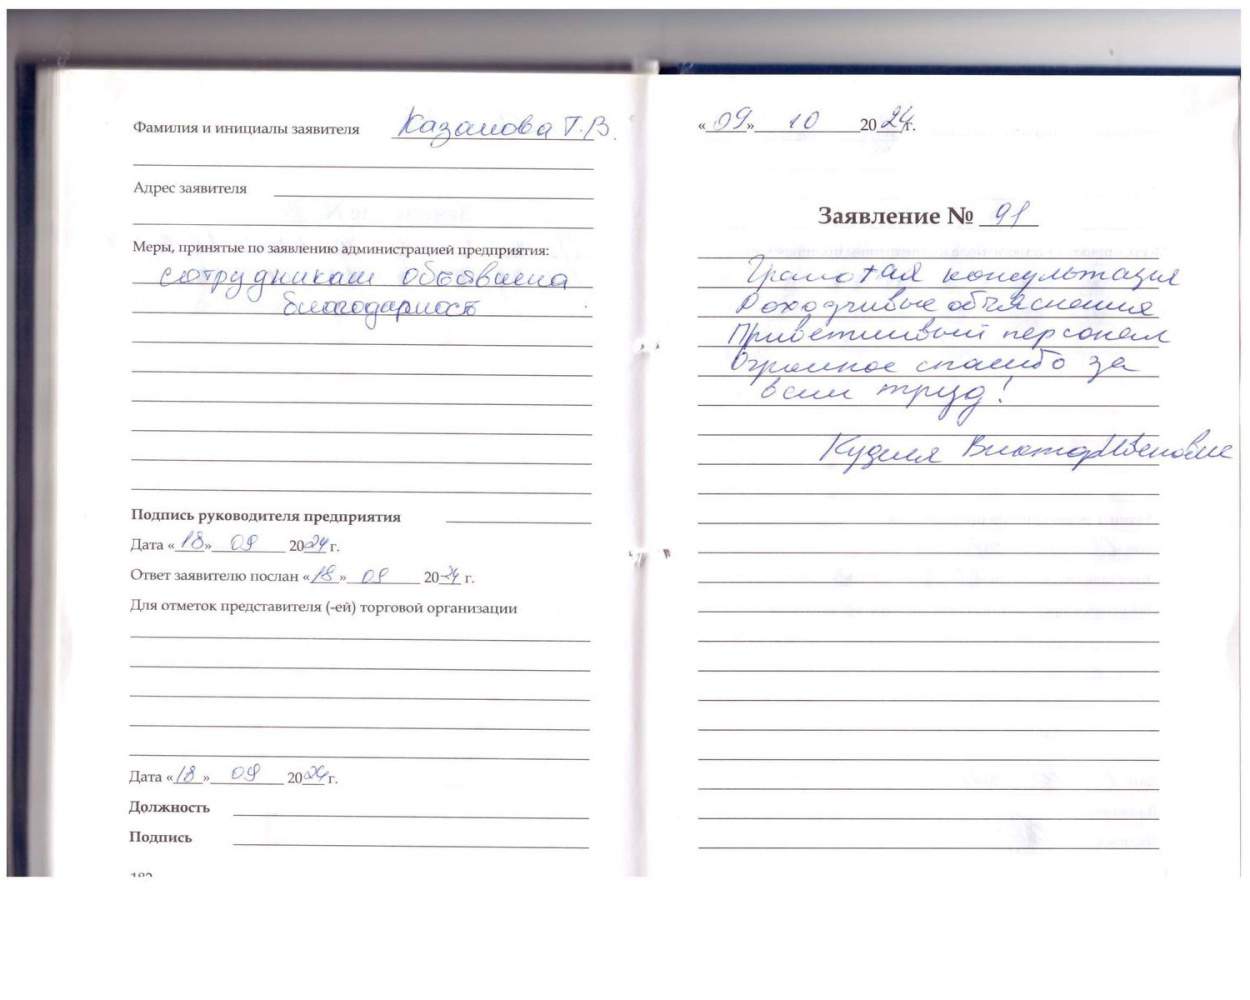 Фамилия и инициалы заявителя Казакова Т.В.
Адрес заявителя
Меры, принятые по заявлению администрацией предприятия:
сотрудникам объявлена
благодарность
Подпись руководителя предприятия
Дата «18» 09 2024 г.
Ответ заявителю послан «18» 09 2024 г.
Для отметок представителя (-ей) торговой организации
Дата «18» 09 2024 г.
Должность
Подпись
«09» 10 2024 г.
Заявление № 91
Грамотая консультация
Доходчивые объяснения
Приветливый персонал
Огромное спасибо за
ваш труд!